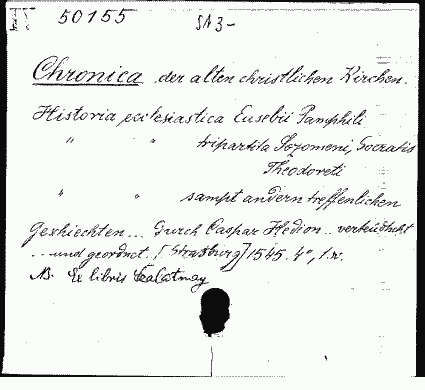 50155
SA3-
Chronica der alten christlichen Kirchen.
Historia ecclesiastica Eusebii Pamphili
" " tripartita Sozomeni, Socratis
Theodoreti
" " sampt andern treffenlichen
Geschichten... Durch Caspar Hedion.. verteutscht
.. und geordnet. [Strassburg] 1545. 4°, 1.
NB. Ex libris